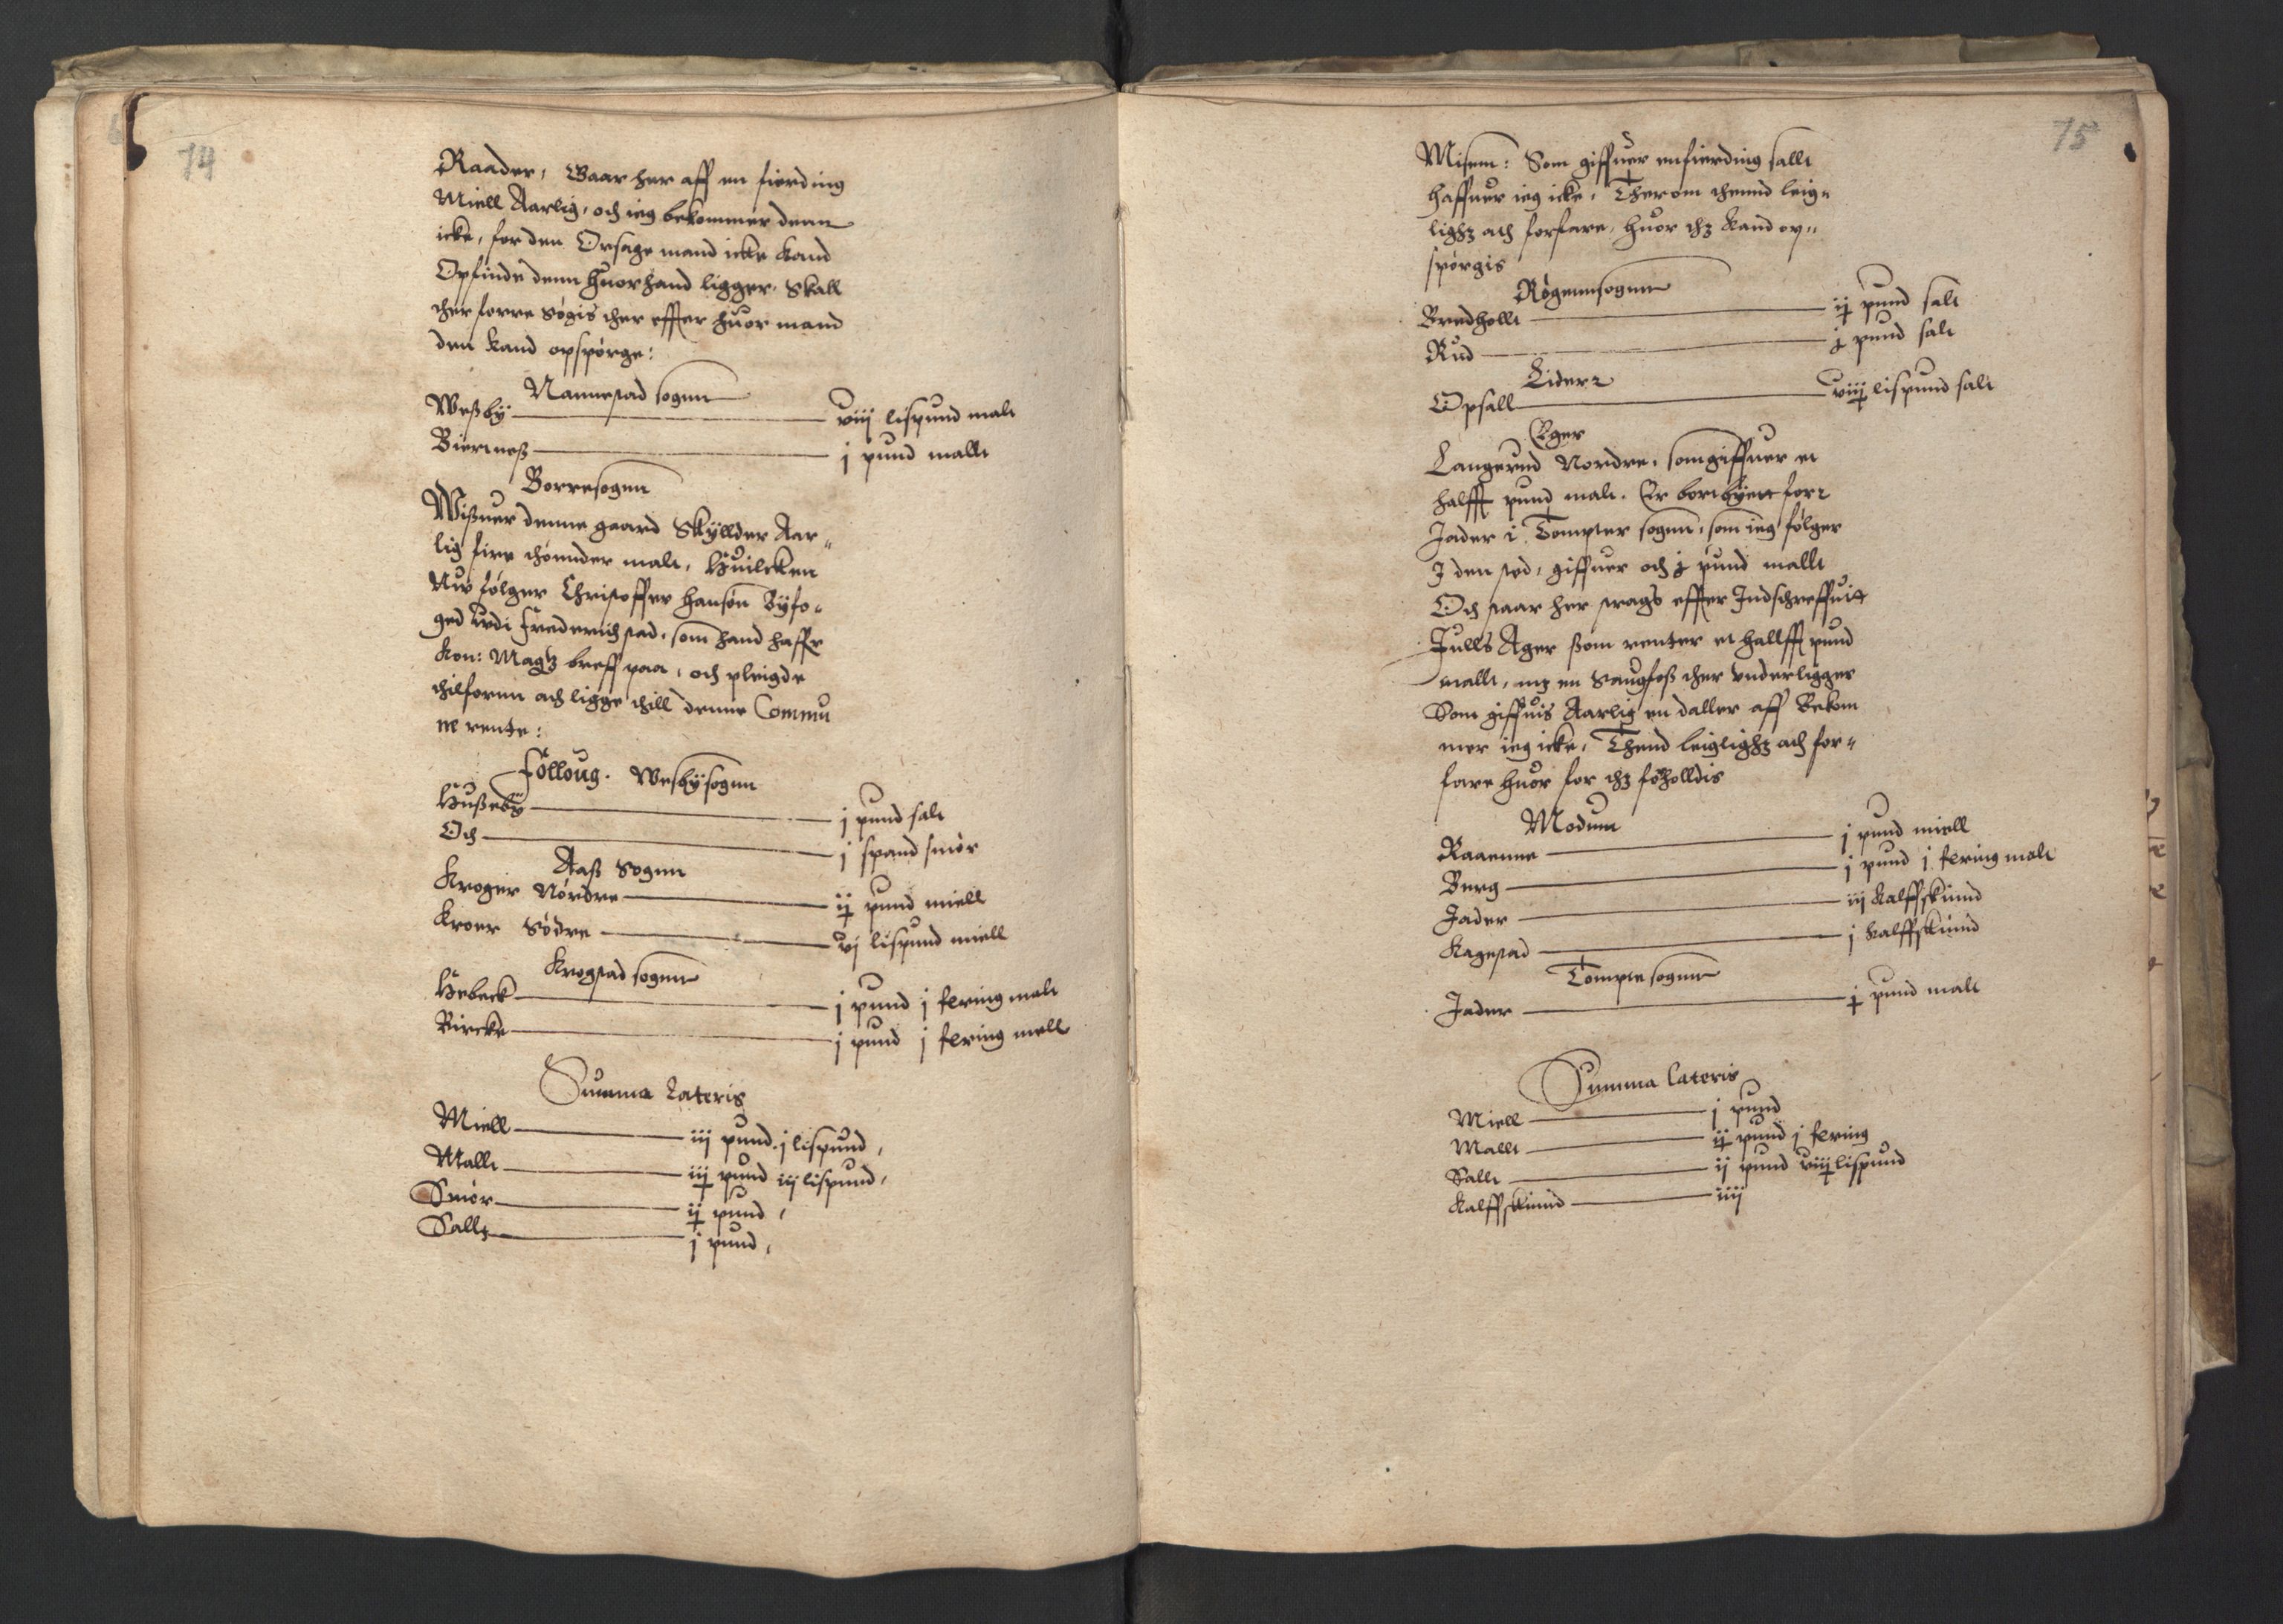 74
Raader, Waar her aff en fierding
Miell Aarlig, och ieg bekommer denn
icke, for den Orsage mand icke kand
Opfinde denn huor hand ligger, Skall
ther forre Søgis ther effter huor mand
den kand opspørge:
Nannestad sogenn
Weßby viij lispund malt
Biertneß j pund mallt
Borresogenn
Mißuer denne gaard Skÿllder Aar-
lig fire thønnder malt, Huilcken
Nu følger Christoffer Hansøn Bÿfo-
ged udi Frederichstad, som hand haffr
Kon: Mag: breff paa, och pleigde
thilforenn ath ligge thill denne Commu
ne rente:
Følloug. Wesbÿ sogenn
Hußebÿ j pund salt
Och j spand smør
Aaß Sogenn
Kroger Nørdre ij pund miell
Kroer Sødre vj lispund miell
Krogstad sogenn
Hebeck j pund j fering malt
Bircke j pund j fering mell
Summa Lateris
Miell iij pund j lispund,
Mallt iij pund iij lispund,
Smør ij pund,
Sallt j pund,
75
Misem: Som giffuer en fierding sallt
haffuer ieg icke, Ther om thennd leig-
lighz ath forfare, huor thz kand op-
spørgis
Røgennsogenn
Bredhollt ij pund salt
Rud j pund salt
Lider
Opsall viij lispund salt
Eger
Langerud Nordre, som giffuer et
halfft pund malt. Er bort bÿtt for
Jader i Tompter sogenn, som ieg følger
I den sted, giffuer och j pund mallt
Och staar her strags effter Indschreffuit
Julls Ager ßom renter et hallfft pund
mallt, mz en Saugfoß ther underligger
Som giffuis Aarlig en daller aff Bekom
mer ieg icke, Thend leiglighz ath for-
fare huor for thz foholldis
Modum
Raaenne j pund miell
Berg j pund j fering malt
Jader iij kalffskinnd
Kagestad j kalffskinnd
Tompte sogenn
Jader j pund malt
Summa Lateris
Miell j pund
Mallt ij pund j fering
Sallt ij pund viij lispund
Kalffskinnd iiij